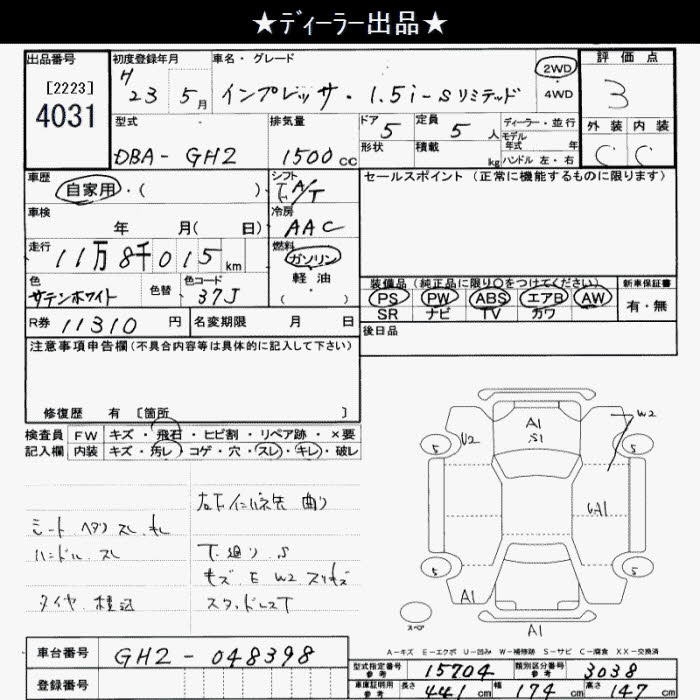 ★ディーラー出品★
出品番号
[2223]
4031
初度登録年月
H
23 5月
車名・グレード
インプレッサ・1.5i-Sリミテッド
2WD
・
4WD
評価点
3
外装 内装
C C
型式
DBA-GH2
排気量
1500cc
ドア 5
形状
定員 5人
積載 kg
ディーラー・並行
モデル
年式 年
ハンドル 左・右
車歴
自家用・( )
シフト
FA/T
車検
年 月( 日)
冷房
AAC
走行
11万8千015km
燃料
ガソリン
・
軽油
( )
色
サテンホワイト
色替
色コード
37J
R券 11310円
名変期限 月 日
セールスポイント(正常に機能するものに限ります)
装備品(純正品に限り○をつけてください)
PS PW ABS エアB AW
SR ナビ TV カワ
新車保証書
有・無
後日品
注意事項申告欄(不具合内容等は具体的に記入して下さい)
修復歴 有 [箇所 ]
検査員
記入欄
FW キズ・飛石・ヒビ割・リペア跡・×要
内装 キズ・汚レ・コゲ・穴・スレ・キレ・破レ
シート ヘタリ スレ キレ
ハンドル スレ
タイヤ 積込
曲り
下廻り S
キズ E W2 スリキズ
スタッドレスT
A1
S1
U2
W2
5
5
5
5
A1
A1
A1
スペア
A-キズ E-エクボ U-凹み W-補修跡 S-サビ C-腐食 XX-交換済
車台番号 GH2-048398
登録番号
型式指定番号
参考
15704
類別区分番号
参考
3038
車庫証明用
参考
長さ 441cm 幅 174cm 高さ 147cm